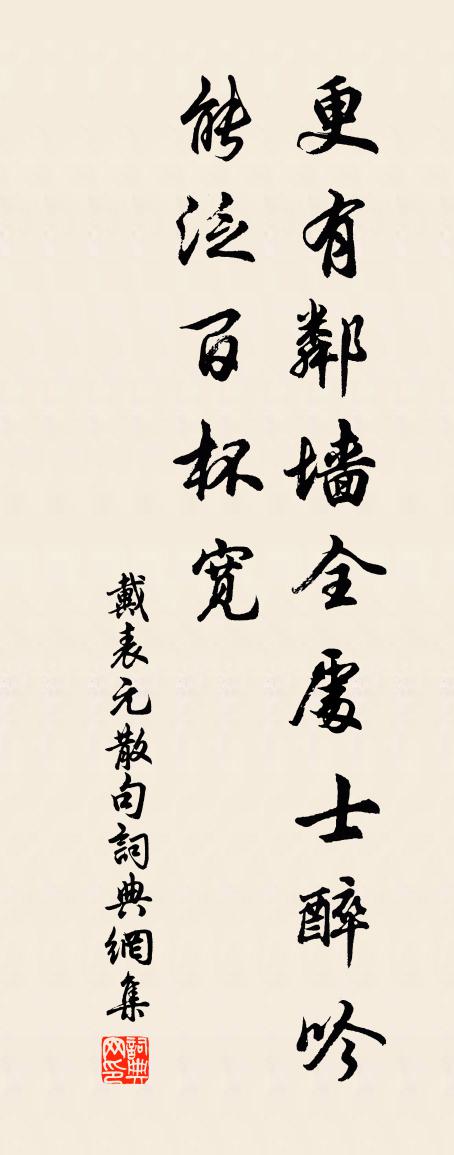 更有鄰墻全處士醉吟
能泛百杯寬
戴表元散句詞典網集
詞典网印